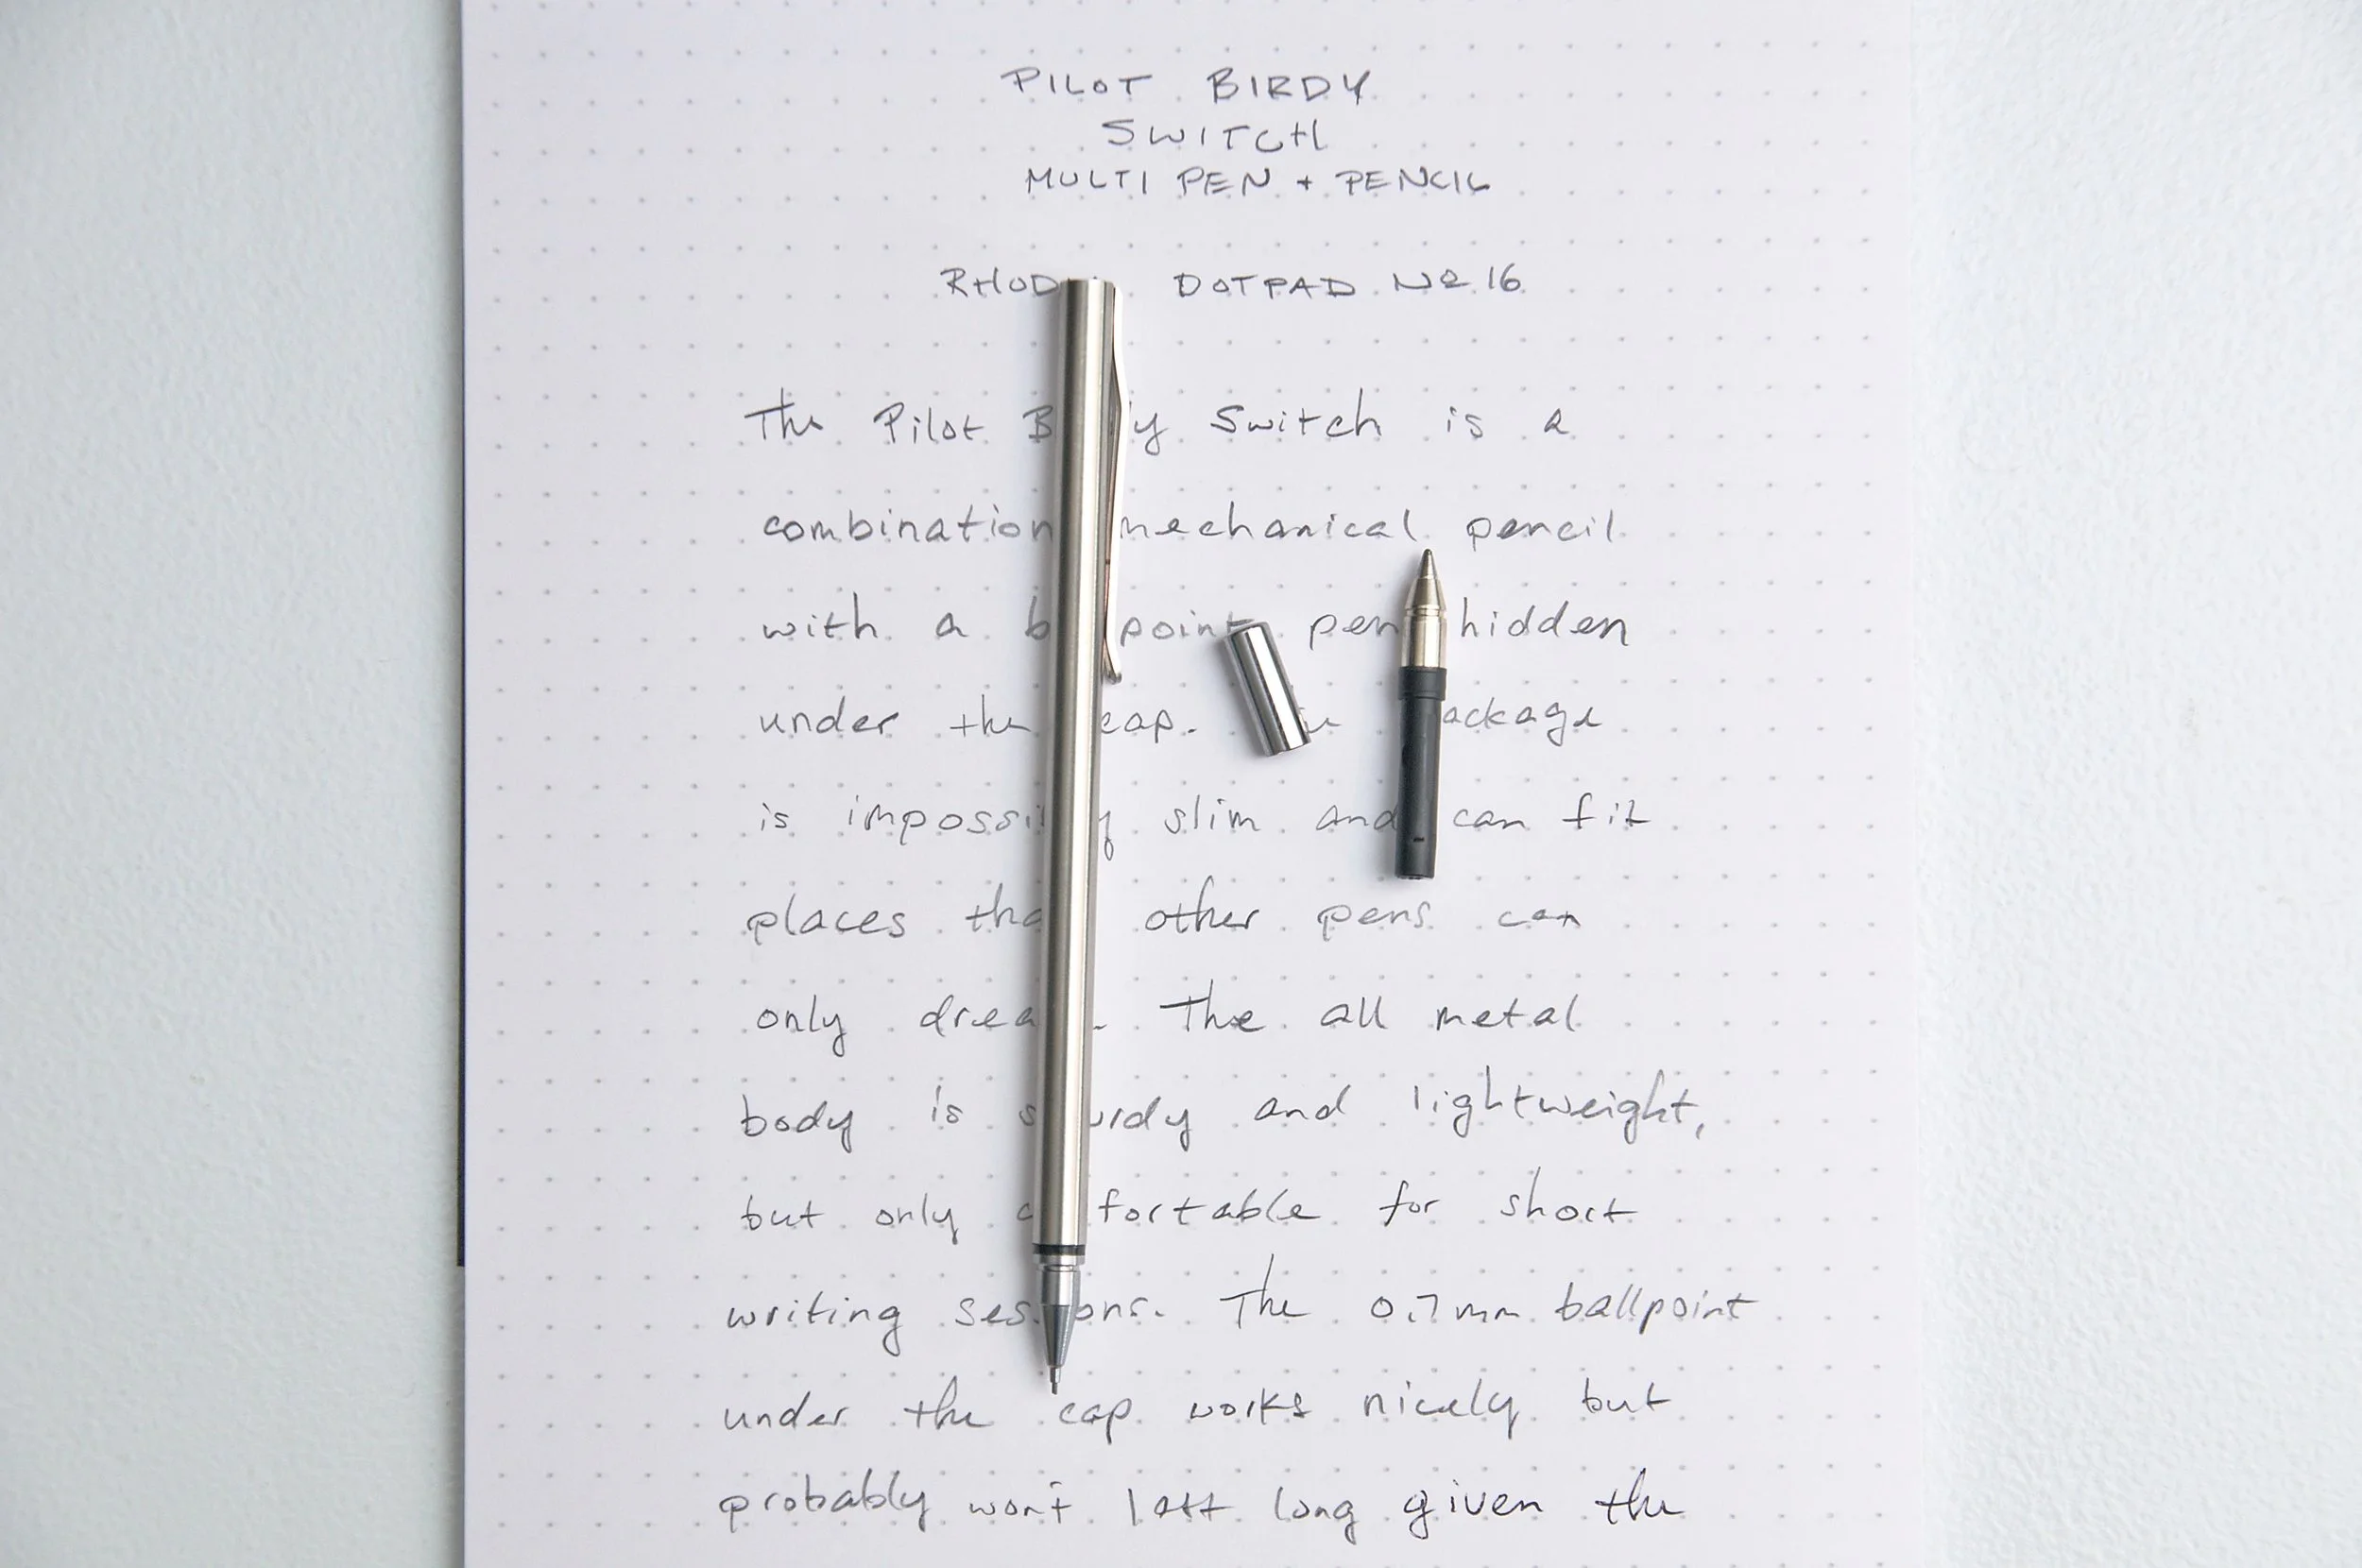 PILOT BIRDY
SWITCH
MULTI PEN + PENCIL
RHODIA DOTPAD No 16
The Pilot Birdy Switch is a
combination mechanical pencil
with a ballpoint pen hidden
under the cap. The package
is impossibly slim and can fit
places that other pens can
only dream. The all metal
body is sturdy and lightweight,
but only comfortable for short
writing sessions. The 0.7mm ballpoint
under the cap works nicely but
probably won't last long given the